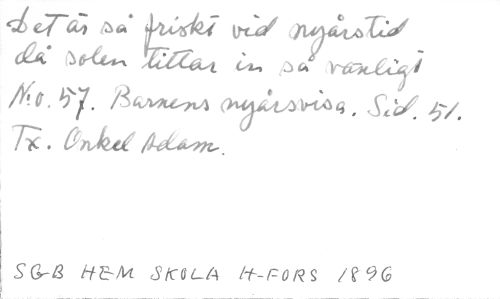 Det är så friskt vid nyårstid
då solen tittar in så vänligt
N:o. 57. Barnens nyårsvisa. Sid. 51.
Tx. Onkel Adam.
SGB HEM SKOLA H-FORS 1896